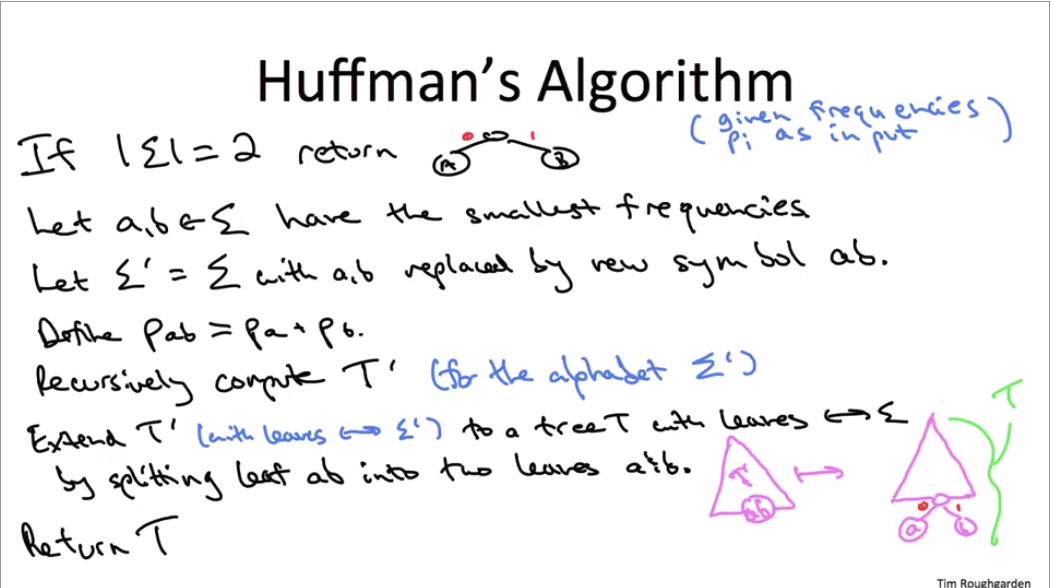 Huffman's Algorithm
(given frequencies
pi as input)
If |Σ| = 2 return
0 1
A B
Let a,b ∈ Σ have the smallest frequencies.
Let Σ' = Σ with a,b replaced by new symbol ab.
Define Pab = Pa + Pb.
Recursively compute T' (for the alphabet Σ')
Extend T' (with leaves ↔ Σ') to a tree T with leaves ↔ Σ
by splitting leaf ab into two leaves a & b.
T' ab ↦ 0 1 a b T
Return T
Tim Roughgarden